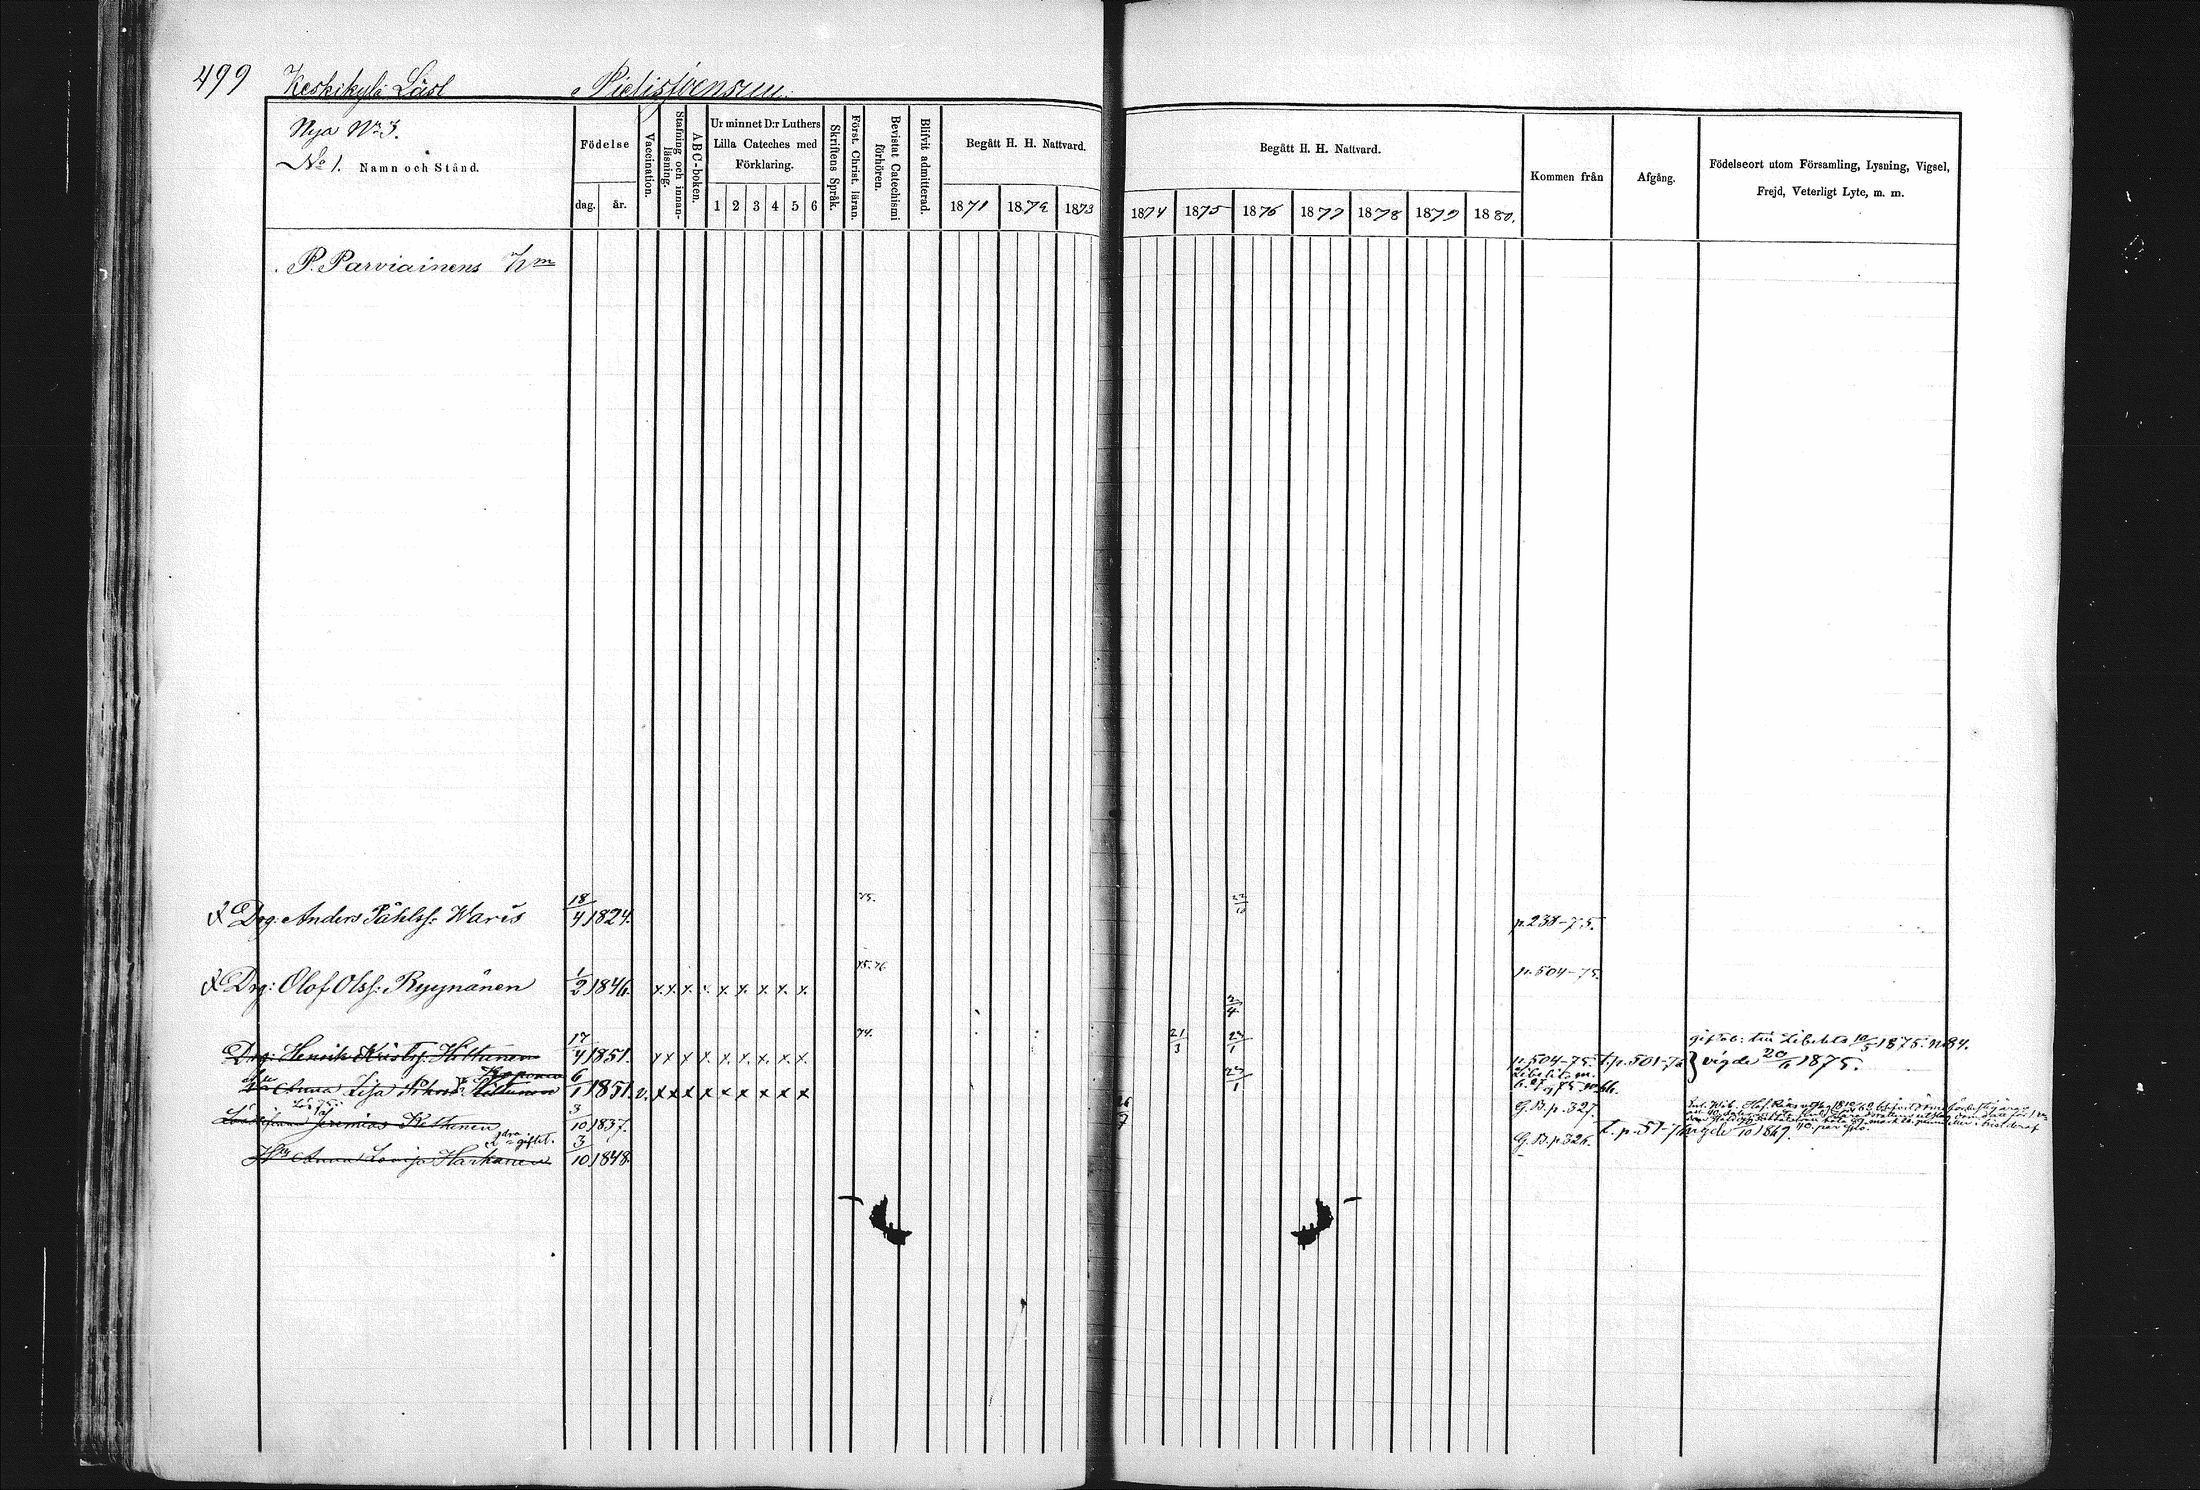 499 Keskikylä Läsl Pielisjoensuu.
Nya No 3.
No 1. Namn och Stånd.
Födelse
dag. år.
Vaccination.
Stafning och innanläsning.
ABC-boken.
Ur minnet D:r Luthers
Lilla Cateches med
Förklaring.
1 2 3 4 5 6
Skriftens Språk.
Först. Christ. läran.
Bevistat Catechismi förhören.
Blifvit admitterad.
Begått H. H. Nattvard.
1871 1872 1873
Begått H. H. Nattvard.
1874 1875 1876 1877 1878 1879 1880.
Kommen från
Afgång.
Födelseort utom Församling, Lysning, Vigsel,
Frejd, Veterligt Lyte, m. m.
P. Parviainens
Drg: Anders Påhlss: Waris 18/4 1824. 75. p. 238-75.
Drg: Olof Olss: Ryynänen 1/2 1846. x x x x x x x x 75. 76. 2/4 p. 504-75.
Drg: Henrik Hiltunen 17/4 1851. x x x x x x x x x 74. 21/3 23/1 p. 504-75. t. p. 501-76 vigde 20/6 1875.
Anna Lisa 6/1 1851. x x x x x x x x x 23/1
Jeremias 3/10 1837. G.B. p. 327.
Anna Lovisa 3/10 1848. G.B. p. 326. t. p. 51-76 vigde 1869.